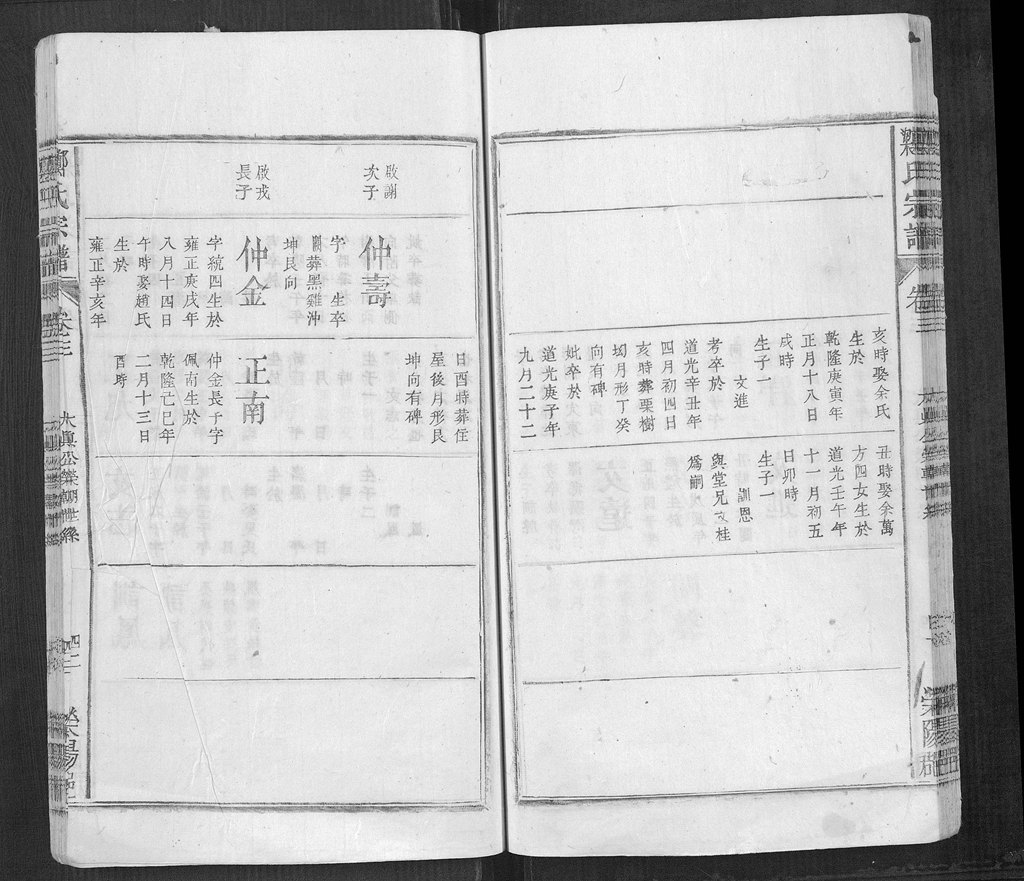 亥時娶余氏
生於
乾隆庚寅年
正月十八日
戌時
生子一
文進
考卒於
道光辛丑年
四月初四日
亥時葬栗樹
坳月形丁癸
向有碑
妣卒於
道光庚子年
九月二十二
丑時娶余萬
方四女生於
道光壬午年
十一月初五
日卯時
生子一
訓恩
與堂兄文桂
為嗣
啟謝
次子
啟戎
長子
仲壽
字 生卒
闕葬黑雞沖
坤艮向
仲金
字統四生於
雍正庚戌年
八月十四日
午時娶趙氏
生於
雍正辛亥年
日酉時葬住
星後月形艮
坤向有碑
正南
仲金長子字
佩南生於
乾隆己巳年
二月十三日
酉時
鄭氏宗譜
卷三
大眞公榮朝世系
滎陽